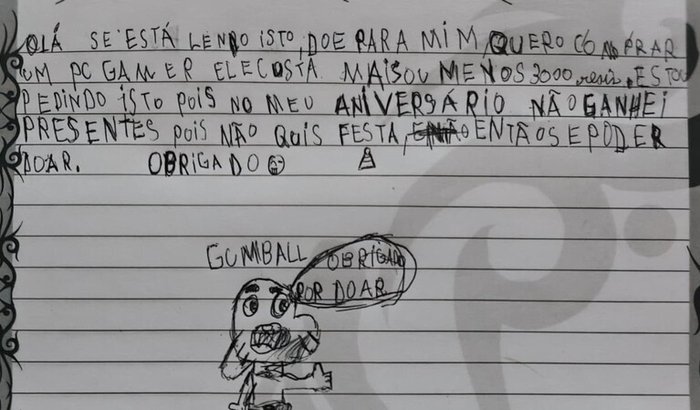 OLÁ SE ESTÁ LENDO ISTO, DOE PARA MIM, QUERO COMPRAR
UM PC GAMER ELE COSTA MAIS OU MENOS 3000 reais. ESTOU
PEDINDO ISTO POIS NO MEU ANIVERSÁRIO NÃO GANHEI
PRESENTES POIS NÃO QUIS FESTA, ENTÃO SE PODER
DOAR. OBRIGADO
GUMBALL OBRIGADO
POR DOAR